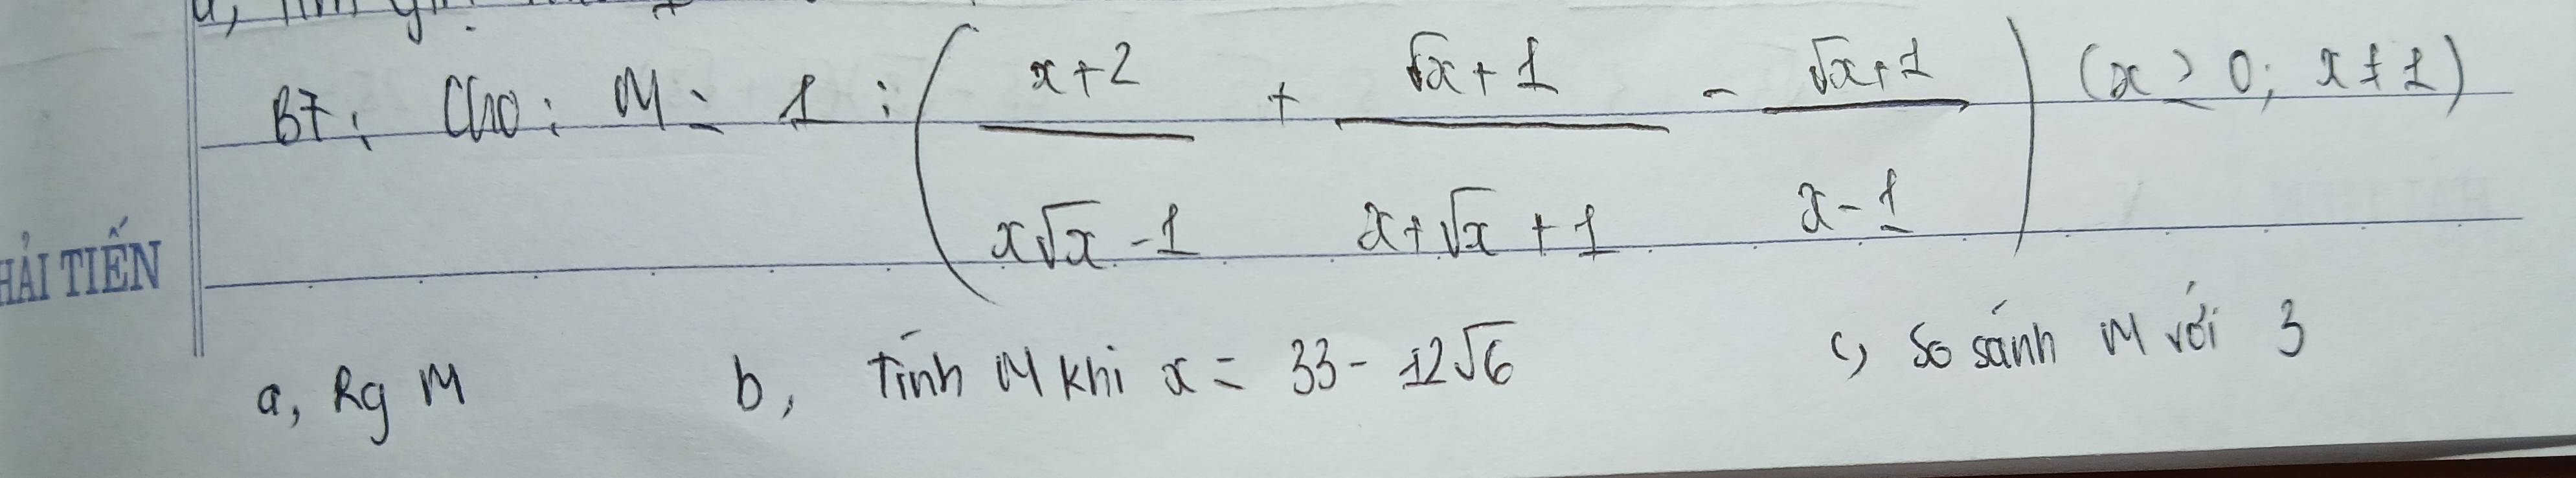 B7: Cho: M = 1 : ( (x+2)/(x√x - 1) + (√x+1)/(x+√x+1) - (√x+1)/(x-1) ) (x ≥ 0; x ≠ 1)
HẢI TIẾN
a, Rg M b, Tính M khi x = 33 - 12√6 c, So sánh M với 3